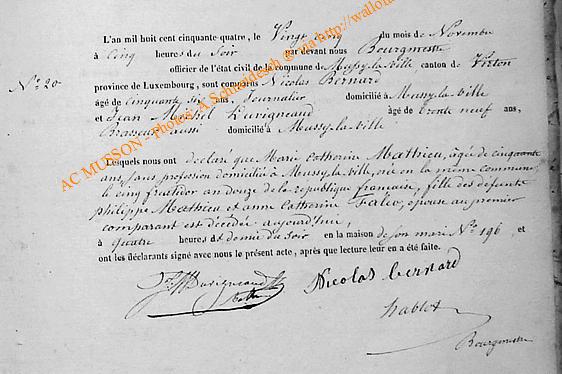 L'an mil huit cent cinquante-quatre, le Vingt cinq du mois de Novembre
à Cinq heures du Soir par devant nous Bourgmestre
officier de l'état civil de la commune de Mussy-la-ville, canton de Virton
N° 20
province de Luxembourg, sont comparus Nicolas Bernard
âgé de Cinquante Six ans, Journalier domicilié à Mussy-la-ville
et Jean Michel Duvigneaud âgé de trente neuf ans,
Brasseur aussi domicilié à Mussy-la-ville
Lesquels nous ont déclaré que Marie Catherine Mathieu, âgée de cinquante
ans, sans profession domicilié à Mussy-la-ville, née en la même commune
le cinq fructidor an douze de la république française, fille des defunts
philippe Mathieu et anne Catherine, épouse au premier
comparant est décédée aujourd'hui,
à quatre heures et demie du Soir en la maison de son mari N° 196, et
ont les déclarants signé avec nous le présent acte, après que lecture leur en a été faite.
Duvigneaud
Nicolas bernard
hablot
Bourgmestre
AC MUSSON - Photos: A Schneidesch @ana http://wallo